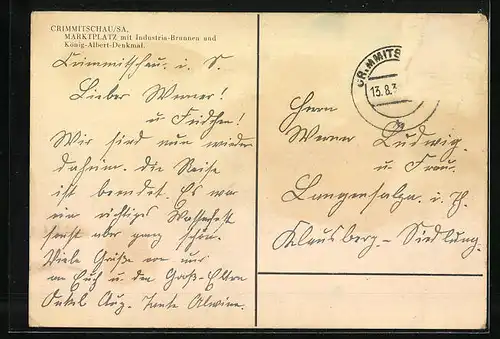 CRIMMITSCHAU/SA.
MARKTPLATZ mit Industrie-Brunnen und
König-Albert-Denkmal.
Crimmitschau. i. S.
Lieber Werner!
u Friedchen!
Wir sind nun wieder
daheim. die Reise
ist beendet. Es war
ein richtiges
sonst aber ganz schön.
Viele Grüße von mir
an Euch u. den Groß-Eltern
Onkel Aug. Tante Alwine.
CRIMMITS
13.8.3
Herrn
Werner Ludwig.
u. Frau.
Langensalza. i. Th.
Klausberg-Siedlung.